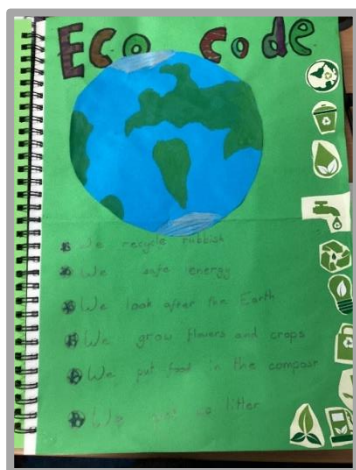 Eco Code
We recycle rubbish
We safe energy
We look after the Earth
We grow flowers and crops
We put food in the compost
We
litter